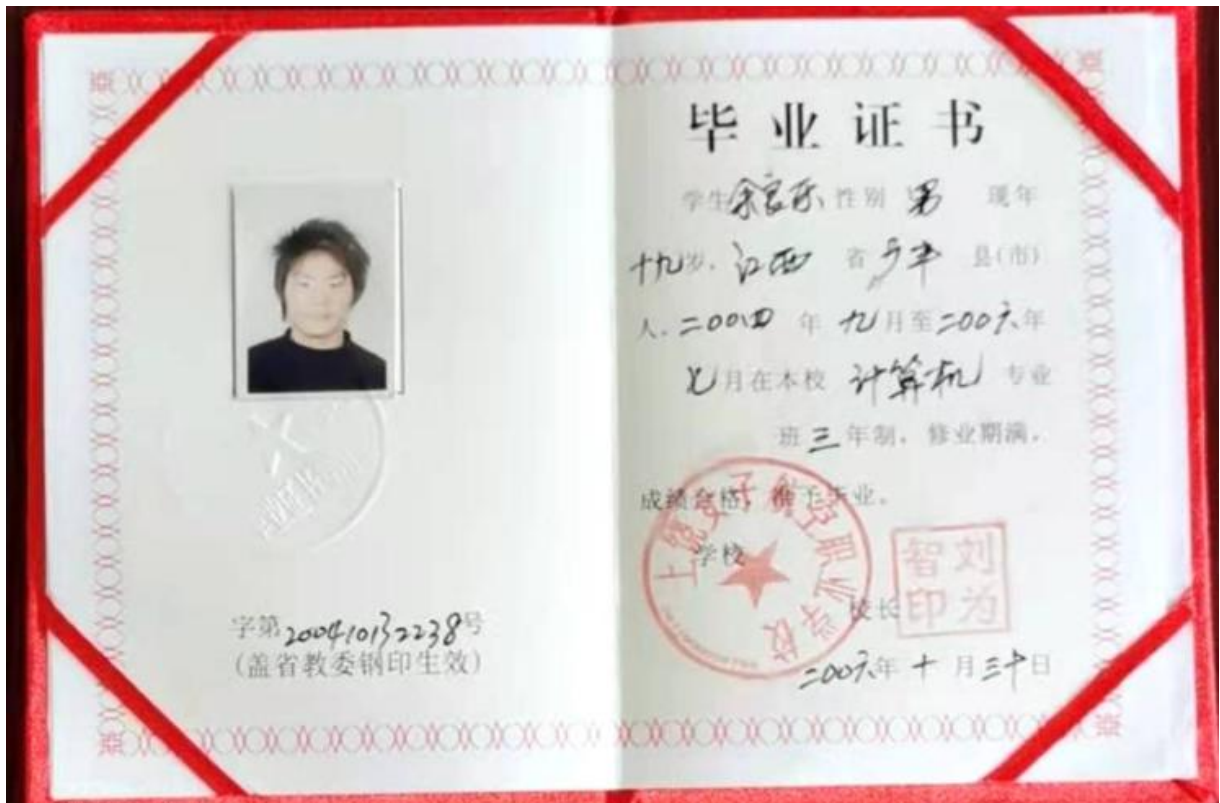 字第200410132238号
(盖省教委钢印生效)
毕业证书
学生余良乐性别 男 现年
十九岁, 江西 省 县(市)
人, 二00四 年 九月至二00六年
七月在本校 计算机 专业
班三年制, 修业期满,
成绩合格, 准予毕业。
学校
上饶女子航空职业学校
校长
刘为智印
二00六年 十 月三十日